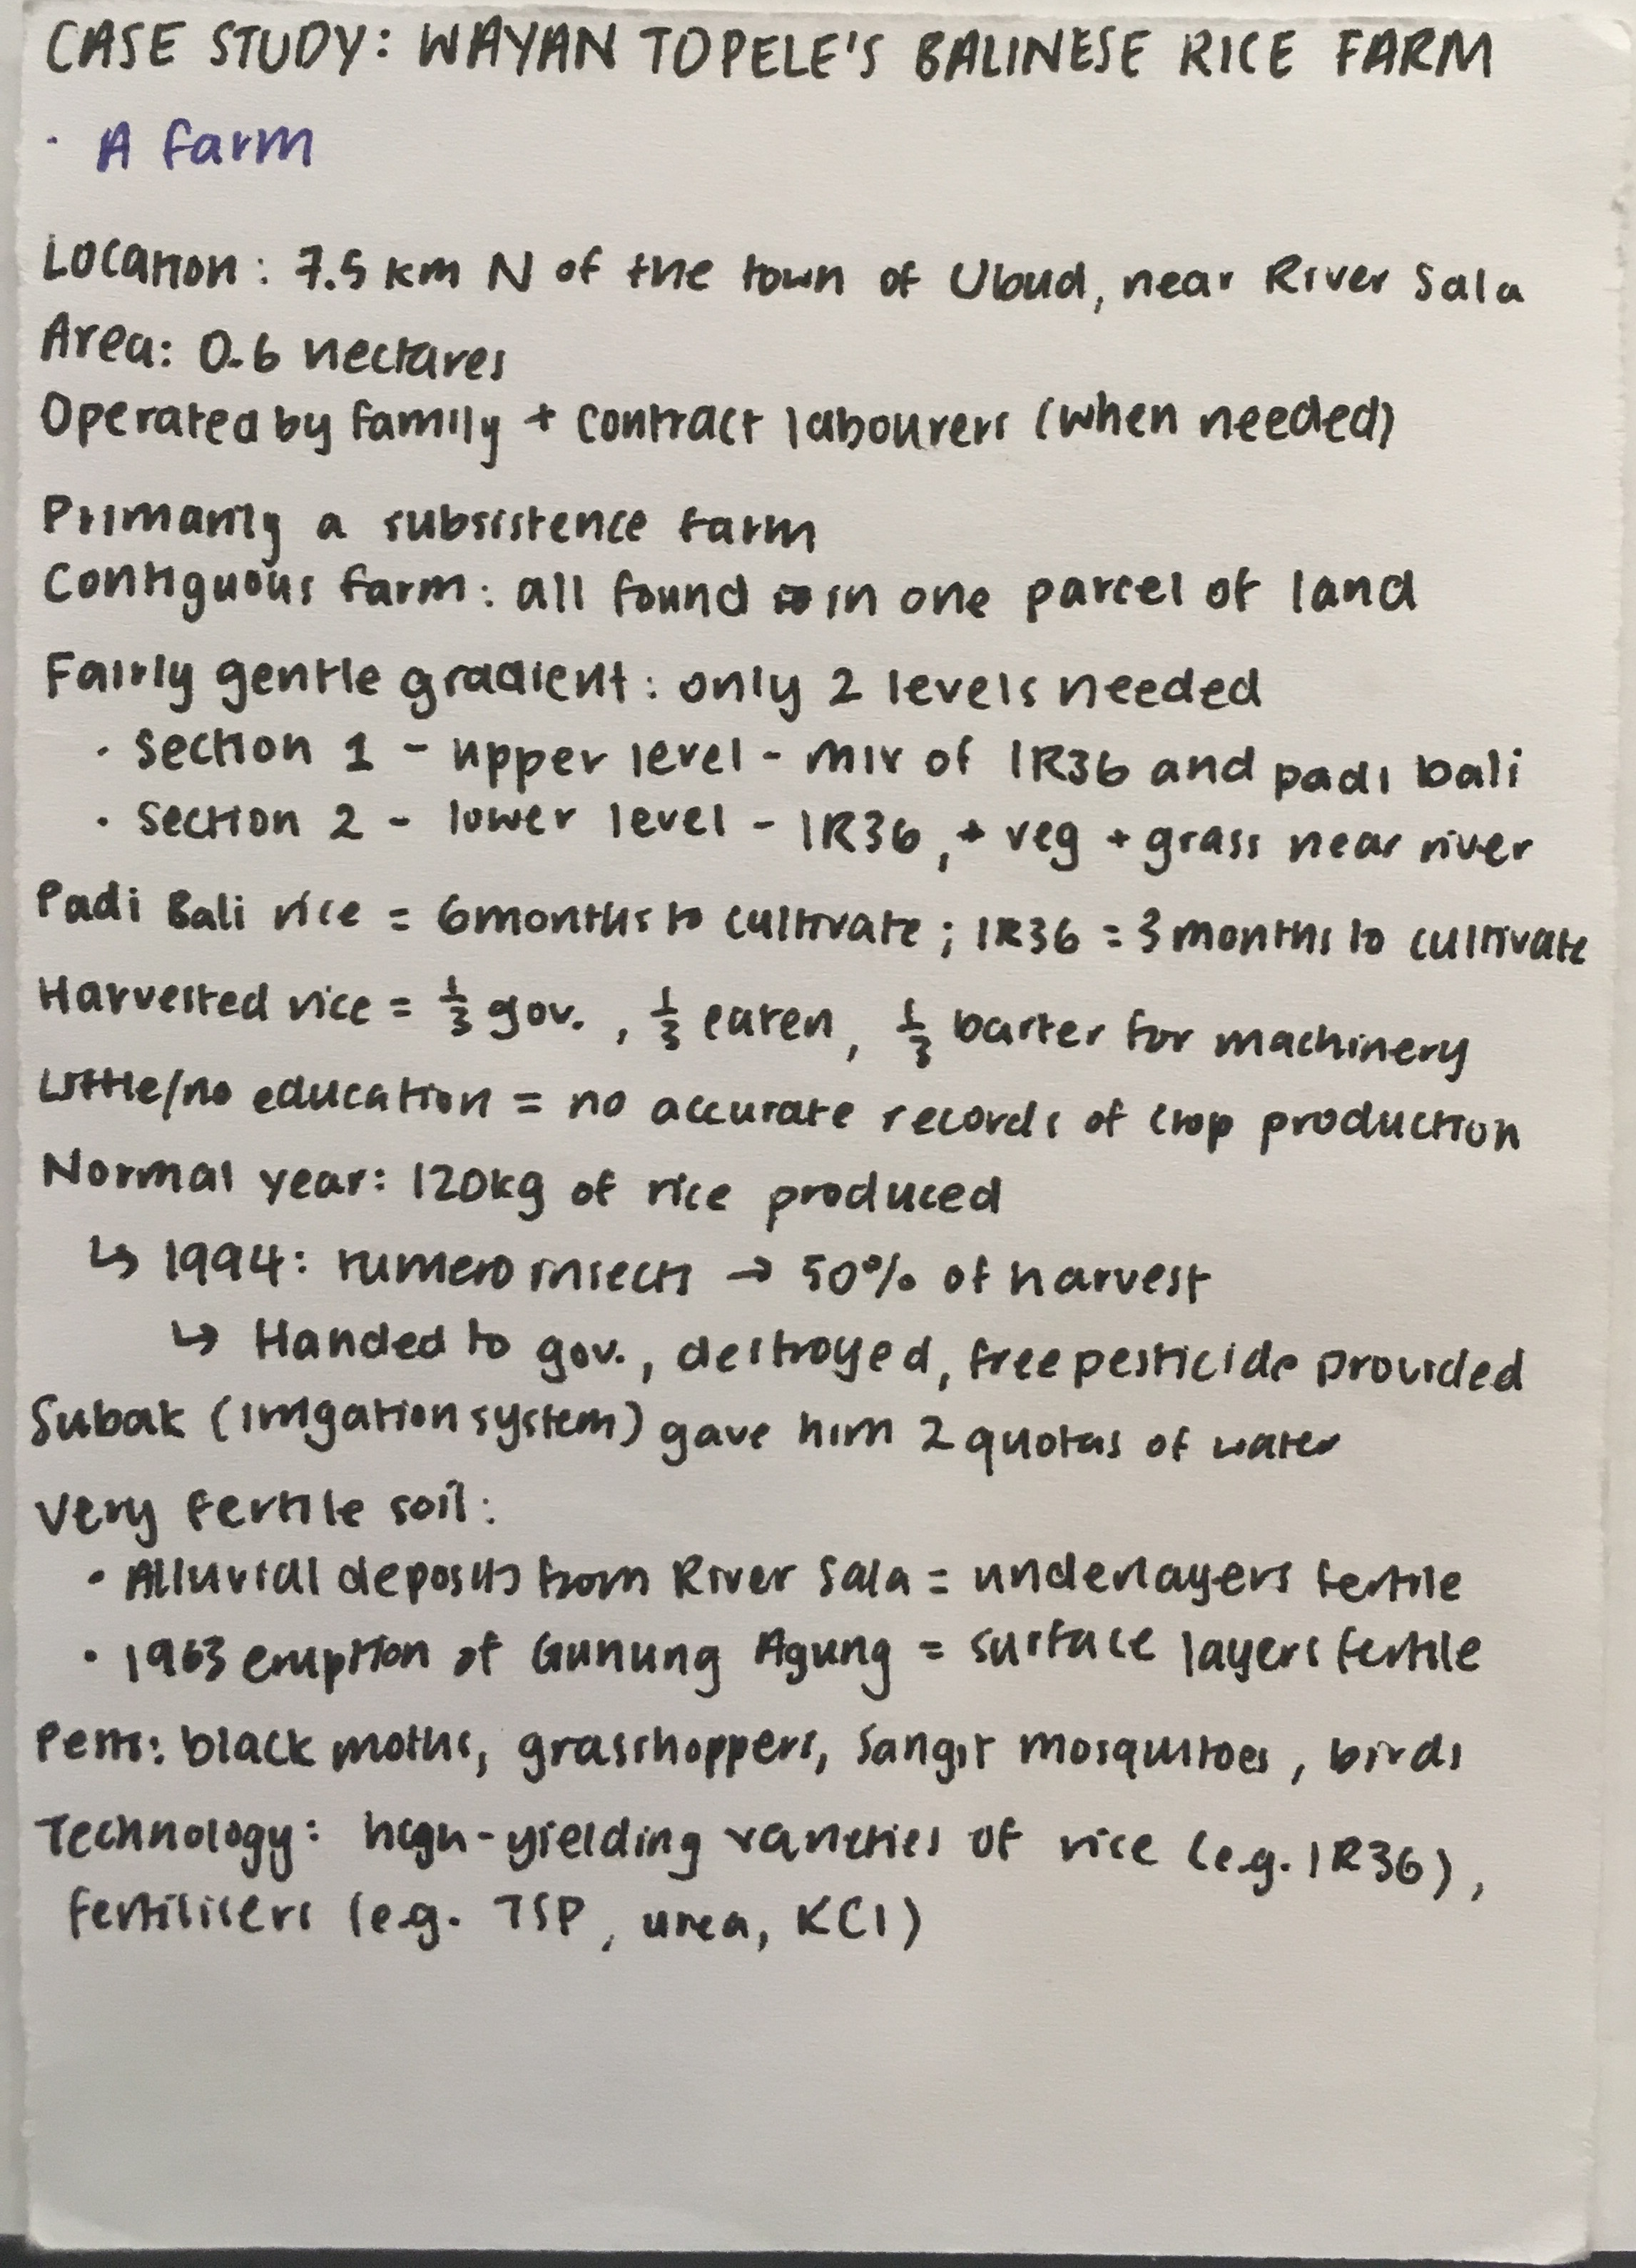 CASE STUDY: WAYAN TOPELE'S BALINESE RICE FARM
· A farm
Location: 7.5 km N of the town of Ubud, near River Sala
Area: 0.6 hectares
Operated by family + contract labourers (when needed)
Primarily a subsistence farm
Contiguous farm: all found in one parcel of land
Fairly gentle gradient: only 2 levels needed
· Section 1 - upper level - mix of IR36 and padi bali
· Section 2 - lower level - IR36, + veg + grass near river
Padi Bali rice = 6 months to cultivate; IR36 = 3 months to cultivate
Harvested rice = 1/3 gov., 1/3 eaten, 1/3 barter for machinery
Little/no education = no accurate records of crop production
Normal year: 120kg of rice produced
↳ 1994: insects → 50% of harvest
↳ Handed to gov., destroyed, free pesticide provided
Subak (irrigation system) gave him 2 quotas of water
Very fertile soil:
· Alluvial deposits from River Sala = underlayers fertile
· 1963 eruption of Gunung Agung = surface layers fertile
Pests: black moths, grasshoppers, Sangit mosquitoes, birds
Technology: high-yielding varieties of rice (e.g. IR36),
fertilisers (e.g. TSP, urea, KCl)